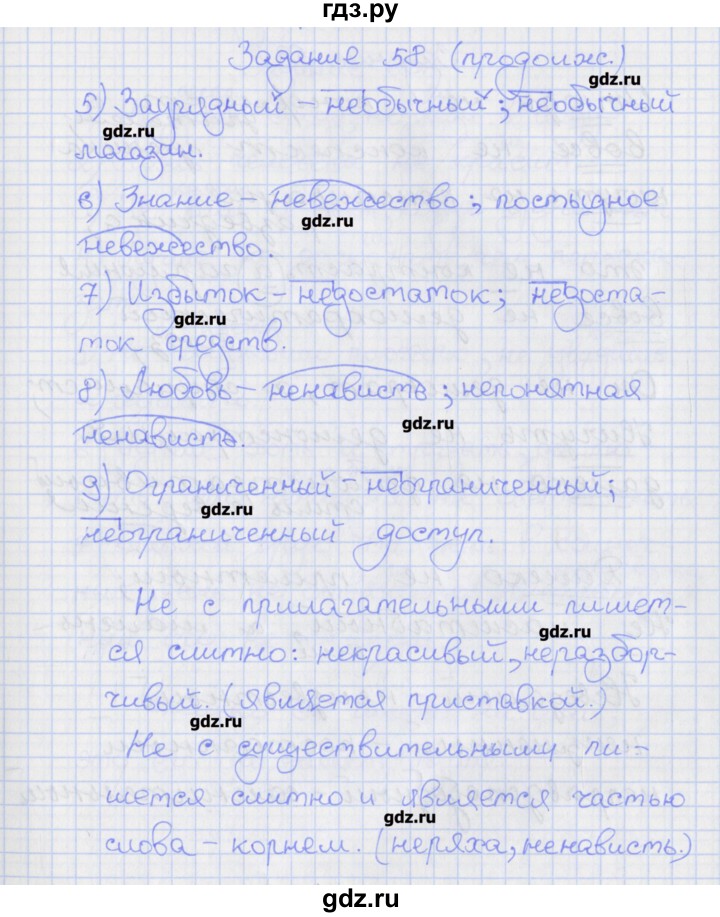 гдз.ру
Задание 58 (продолж.)
gdz.ru
5) Заурядный – необычный; необычный
gdz.ru
магазин.
6) Знание – невежество; постыдное
gdz.ru
невежество.
7) Избыток – недостаток; недоста-
gdz.ru
ток средств.
8) Любовь – ненависть; непонятная
gdz.ru
ненависть.
9) Ограниченный – неограниченный;
gdz.ru
неограниченный доступ.
Не с прилагательными пишет-
gdz.ru
ся слитно: некрасивый, неразбор-
чивый. (является приставкой.)
gdz.ru
Не с существительными пи-
шется слитно и является частью
gdz.ru
слова – корнем. (неряха, ненависть.)
gdz.ru